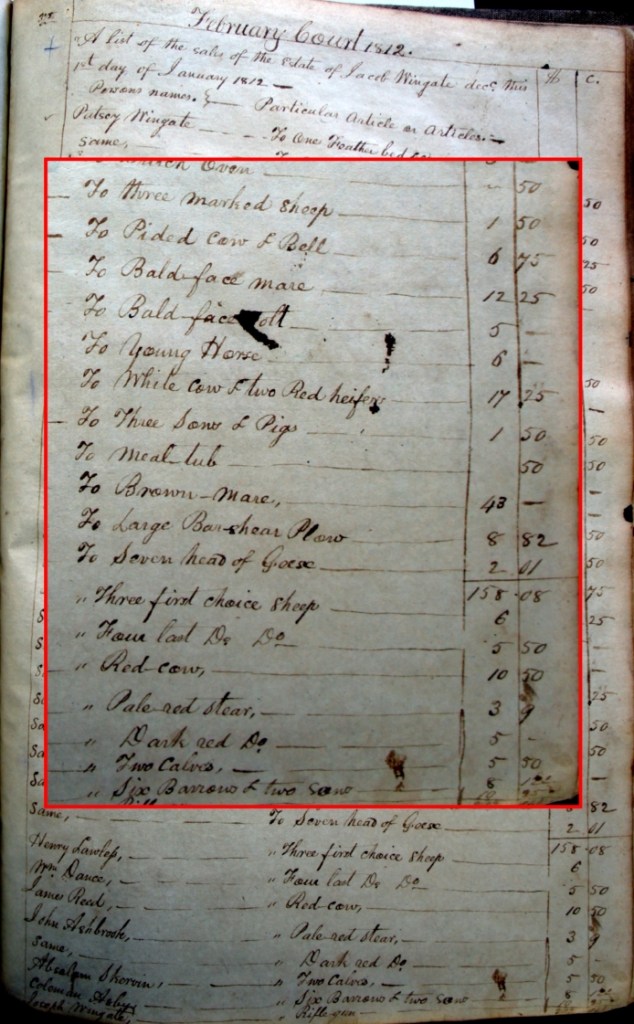 February Court 1812.
A list of the sales of the Estate of Jacob Wingate decd this
1st day of January 1812 —
Persons names. Particular Article or Articles.
$ C.
Patsey Wingate — To One Feather bed
same,
Oven 50
To three marked sheep 1 50
To Pided Cow & Bell 6 75
To Bald face mare 12 25
To Bald face Colt 5 —
To Young Horse 6 —
To White Cow & two Red heifers 17 25
To Three Sows & Pigs 1 50
To meal tub 50
To Brown mare, 43 —
To Large Bar-shear Plow 8 82
To Seven head of Geese 2 01
158.08
" Three first choice sheep 6
" Four last Do Do 5 50
" Red cow, 10 50
" Pale red stear, 3 9
" Dark red Do 5 —
" Two Calves, — 5 50
" Six Barrows & two sows 8
50
50
25
50
50
—
50
50
—
—
50
50
75
25
25
50
50
—
82
same, — To Seven head of Geese 2 01
158.08
Henry Lawlop, — " Three first choice sheep 6
Wm Dance, — " Four last Do Do 5 50
James Reed, — " Red cow, 10 50
John Ashbrook, — " Pale red stear, 3 9
same, — " Dark red Do 5 —
Absalam — " Two Calves, — 5 50
Coleman Asby — " Six Barrows & two sows 8
Joseph Wingate, — " Rifle gun